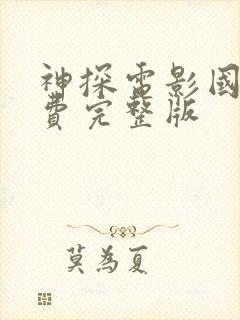 神探電影國
費完整版
莫為夏